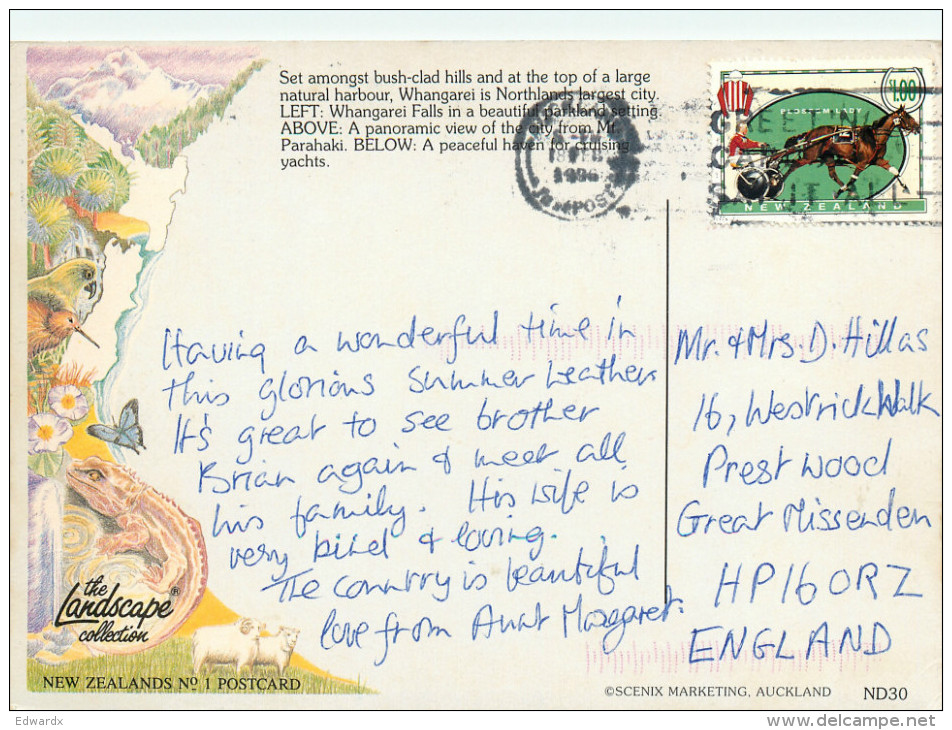 Set amongst bush-clad hills and at the top of a large
natural harbour, Whangarei is Northlands largest city.
LEFT: Whangarei Falls in a beautiful parkland setting.
ABOVE: A panoramic view of the city from Mt.
Parahaki. BELOW: A peaceful haven for cruising
yachts.
1996
POST
GREETING
$1.00
BLOSSOM LADY
NEW ZEALAND
Having a wonderful time in
this glorious summer weather
It's great to see brother
Brian again & meet all
his family. His wife is
very kind & loving.
The country is beautiful
love from Aunt Margaret.
Mr. & Mrs D. Hillas
16, Westrick Walk
Prestwood
Great Missenden
HP16 0RZ
ENGLAND
the
Landscape®
collection
NEW ZEALANDS Nº 1 POSTCARD
©SCENIX MARKETING, AUCKLAND ND30
Edwardx
http://www.delcampe.net